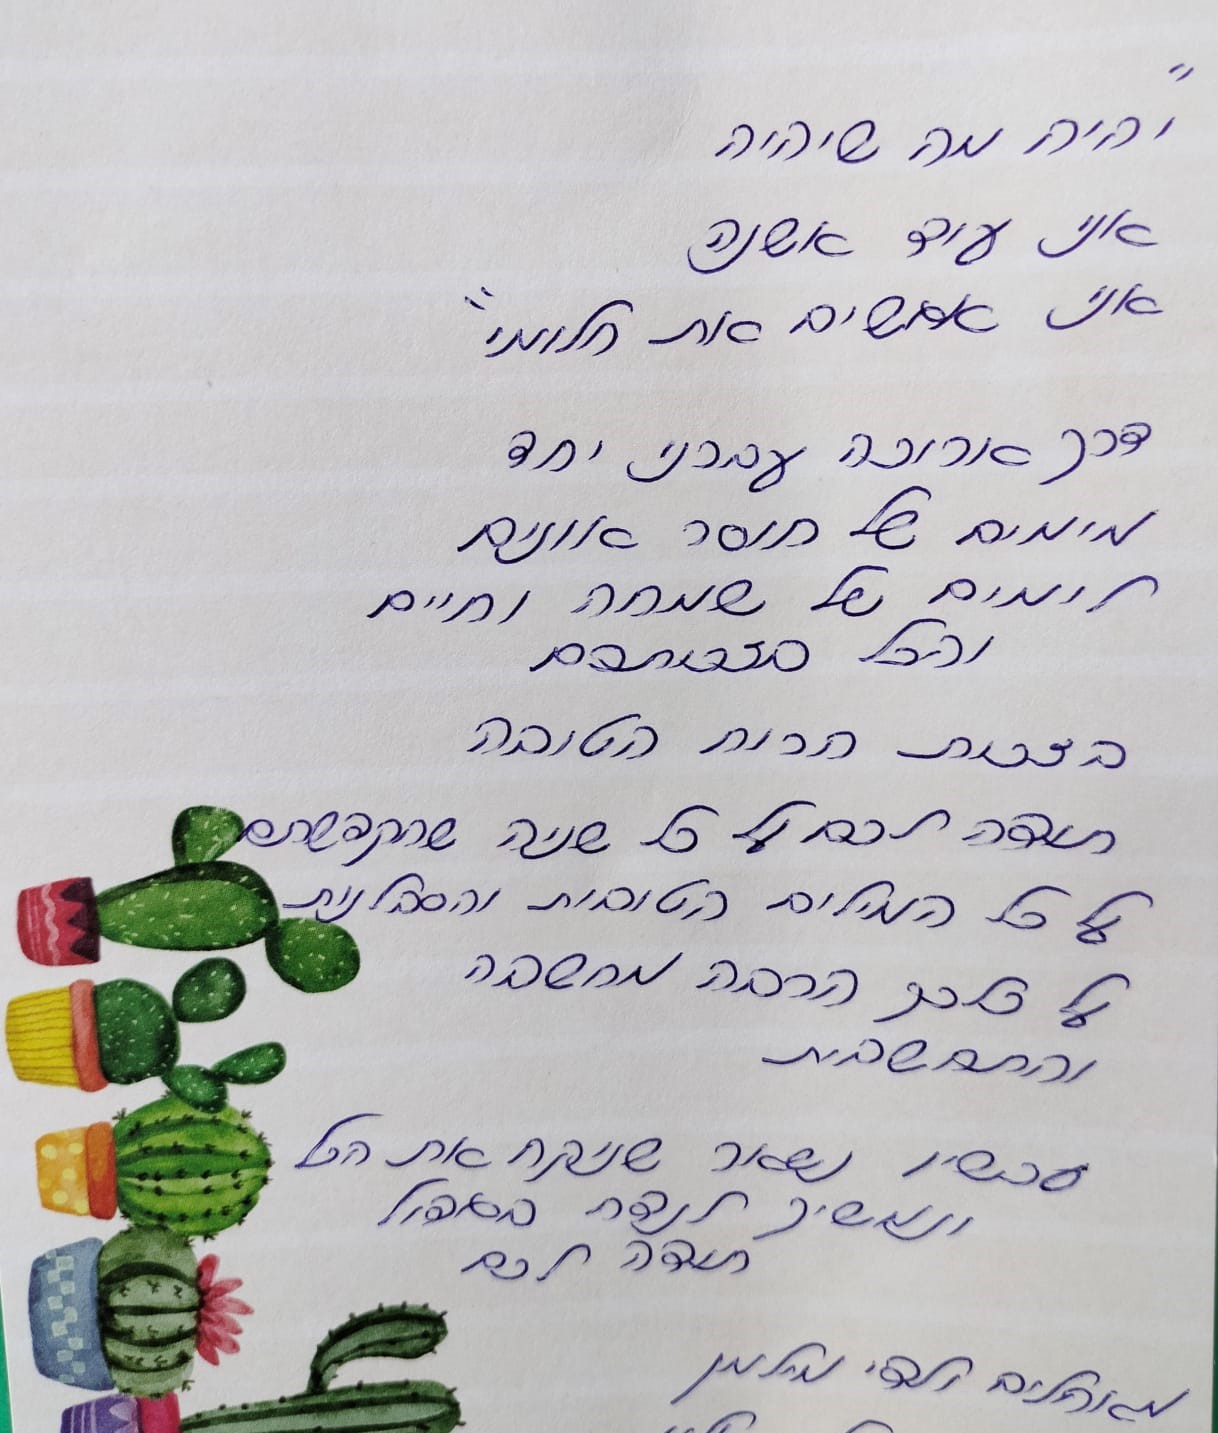 "
יהיה מה שיהיה
אני עוד אשנה
אני אגשים את חלומי"
דרך ארוכה עברנו יחד
מימים של חוסר אונים
לימים של שמחה וחיים
והכל בזכותכם
בזכות הרוח הטובה
תודה לכם על כל שניה שהקדשתם
על כל המילים הטובות והסבלנות
על כל כך הרבה מחשבה
והתחשבות
עכשיו נשאר שניקח את הכל
ונמשיך לנצח בגדול
תודה לכם
מאוהלים